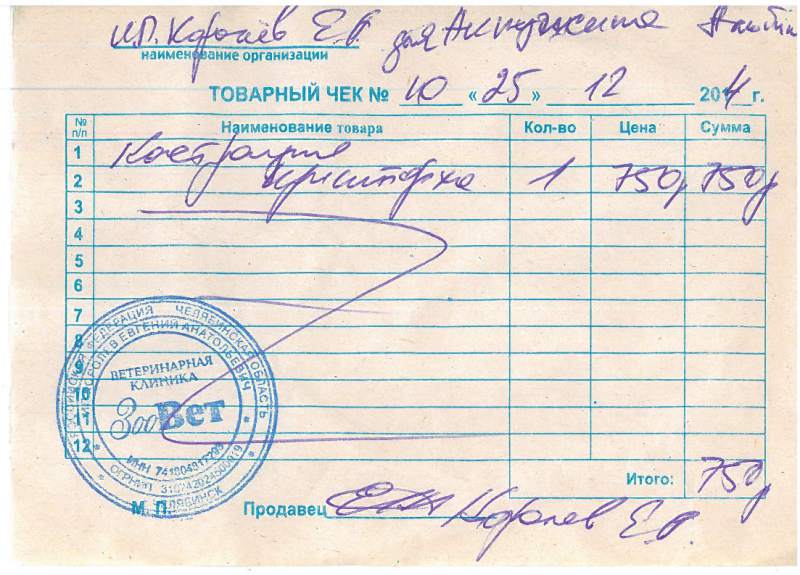 И.П. Королёв Е.А. для
наименование организации
ТОВАРНЫЙ ЧЕК № 10 «25» 12 2014 г.
№ п/п Наименование товара Кол-во Цена Сумма
1 Кастрация
2 1 750р 750р
3
4
5
6
7
8
9
10
11
12
Итого: 750р
М. П. Продавец Королев Е.А.
РОССИЙСКАЯ ФЕДЕРАЦИЯ ЧЕЛЯБИНСКАЯ ОБЛАСТЬ
ИП КОРОЛЕВ ЕВГЕНИЙ АНАТОЛЬЕВИЧ
ВЕТЕРИНАРНАЯ
КЛИНИКА
ЗооВет
ИНН
ОГРНИП
ЧЕЛЯБИНСК